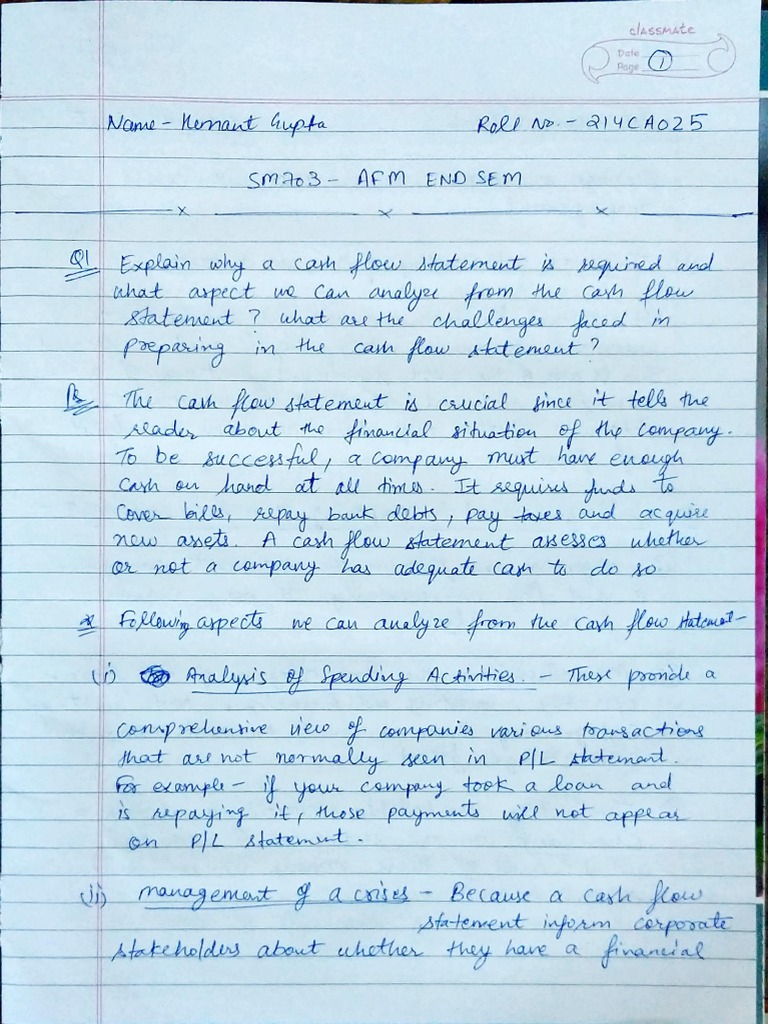 classmate
Date
Page 1
Name - Hemant Gupta Roll No. - 214CA025
SM703 - AFM END SEM
Q1 Explain why a cash flow statement is required and
what aspect we can analyze from the cash flow
statement? what are the challenges faced in
preparing in the cash flow statement?
The cash flow statement is crucial since it tells the
reader about the financial situation of the company.
To be successful, a company must have enough
cash on hand at all times. It requires funds to
cover bills, repay bank debts, pay taxes and acquire
new assets. A cash flow statement assesses whether
or not a company has adequate cash to do so
* Following aspects we can analyze from the cash flow statement-
(i) Analysis of Spending Activities. - These provide a
comprehensive view of companies various transactions
that are not normally seen in P/L statement.
For example - if your company took a loan and
is repaying it, those payments will not appear
on P/L statement.
(ii) management of a crises - Because a cash flow
statement inform corporate
stakeholders about whether they have a financial